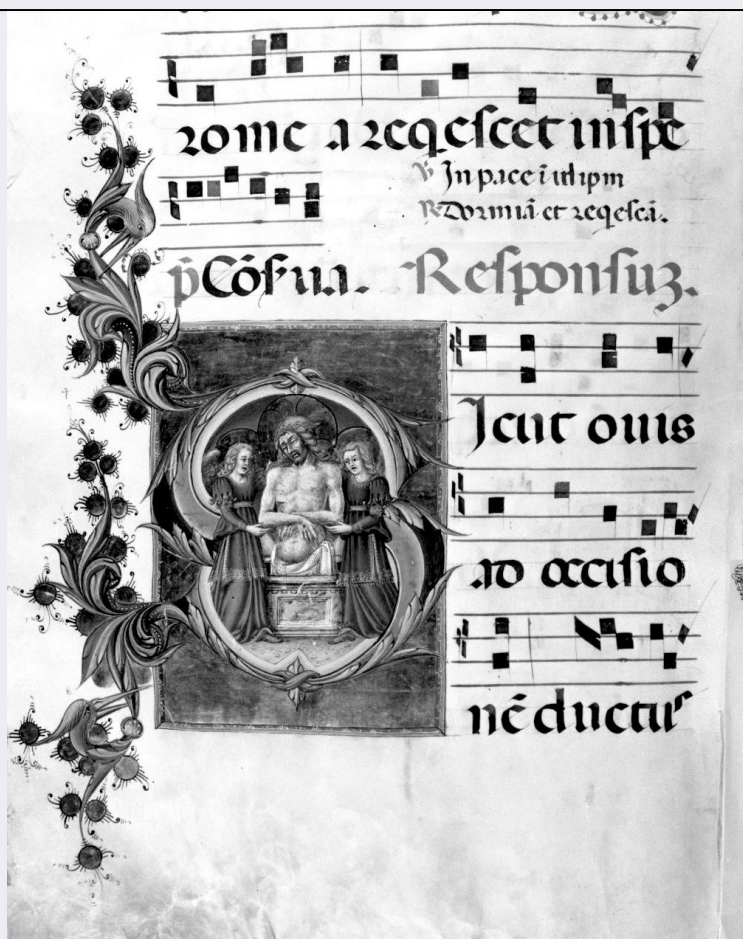 rome a reqescet in spe
℣ In pace ī idipm
℟ Dormiā et reqescā.
p̄ Cōs͛ua. Responsuz.
S Icut ouis
ad occisio
nē ductus